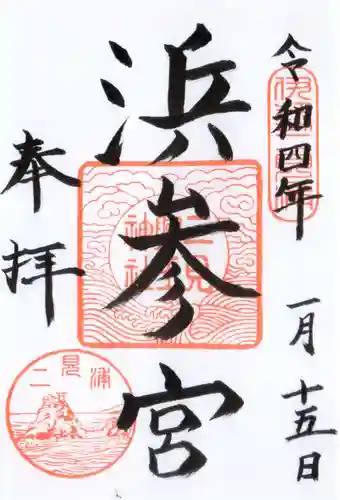 令和四年
一月十五日
浜参宮
奉拝
二見興玉神社
二見浦